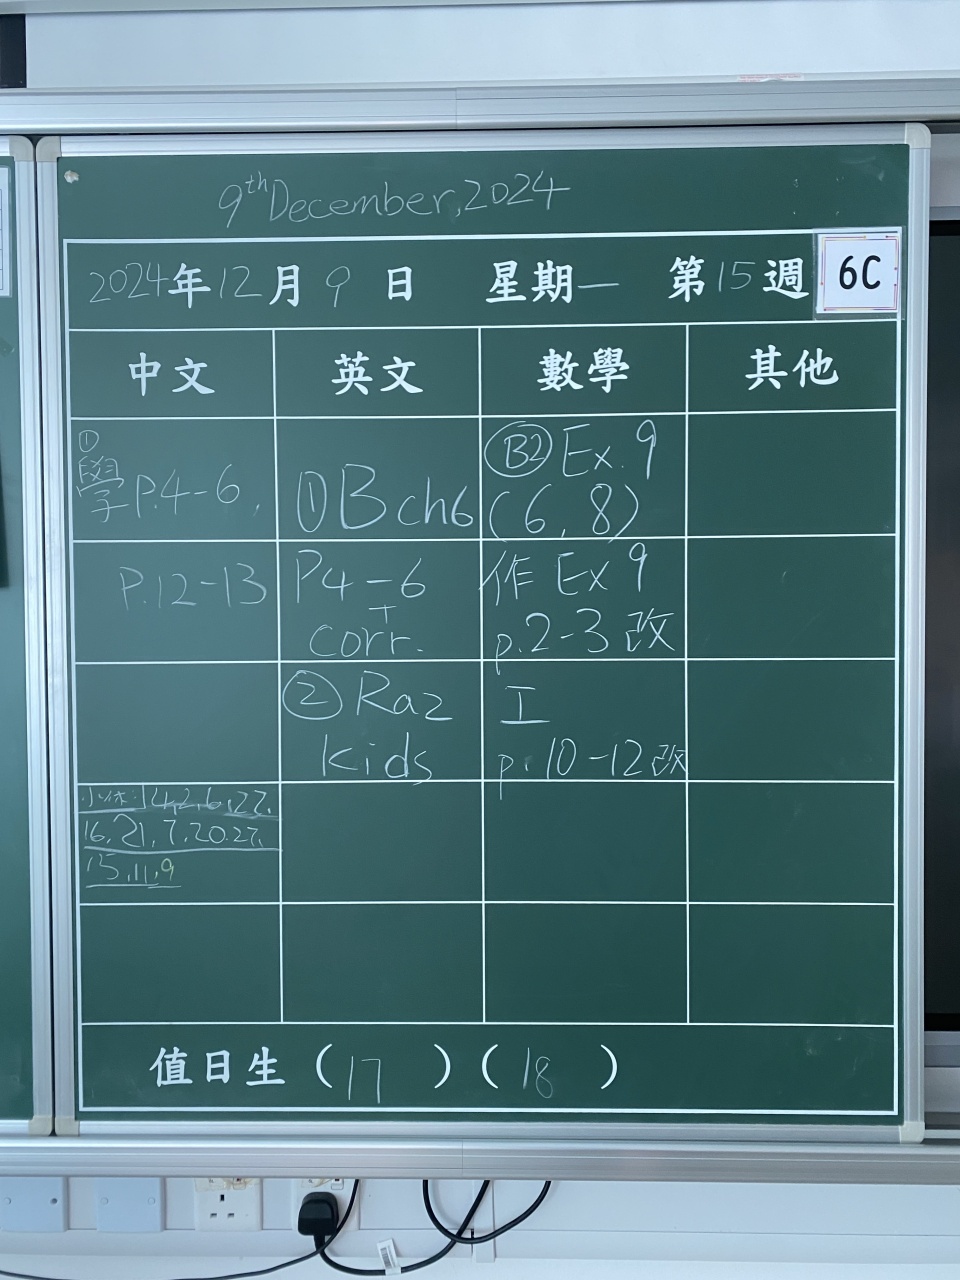 9th December, 2024
2024年12月9日 星期一 第15週 6C
中文 英文 數學 其他
①
學P.4-6,
P.12-13
小休:14,2,6,22,
16,21,7,20,27,
15,11,9
①B ch6
P4-6
+
corr.
② Raz
kids
B2 Ex.9
(6,8)
作 Ex 9
p.2-3 改
工
p.10-12改
值日生(17)(18)